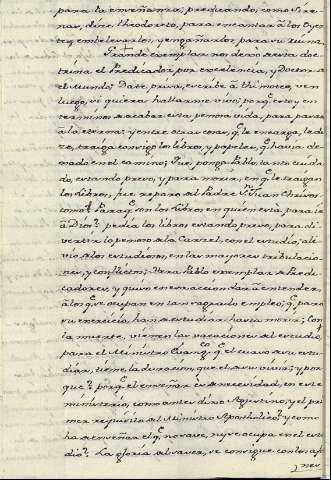 para la enseñanza; predicando, como Sire-
nas, dice Theodoreto, para encantar â los Oyen
tes, embelevarlos, y engañarlos, para su ruina.
Grande exemplar nos dexò desta doc-
trina el Predicador, por excelencia, y Doctor a
el Mundo; Date priva, escribe â Thimoteo, ven
luego, si quieres hallarme vivo; porq. estoy en
terminos acabar esta penosa vida, para pasar
â la eterna: y entre otras cosas, q. le encarga, le di-
ce, traiga consigo los libros, y papeles, q. havia de-
xado en el camino; Pues pongo Pablo tanto cuida
do, estando preso, y para morir, en q. le traigan
los libros, fue reparo del Padre Sn. Juan Chrisos-
tomo: Para q. son los libros en quien està para ir
â Dios? pedia los libros estando preso, para di-
vertir lo penoso de la Carzel, con el estudio, ali-
vio â los estudiosos, en las mayores tribulacio-
nes, y conflictos: Era Pablo exemplar de Predi-
cadores, y quiso en esta accion dar â entender,
â los q. se ocupan en tan sagrado empleo, q. para
su exercicio, han de estudiar hasta morir; Con
la muerte, vienen las vacaciones al estudio,
para el Ministro Evangco. q. el cuaso de su estu-
diar, tiene la duracion, que el de su vivir; y por
que? porq. el enseñar es de necesidad, en este
ministerio, como antes dice Agustino, y el pri-
mer requisito del Ministro Apostholico? y como
ha de enseñar el q. no save, ni se ocupa en el estu-
dio? La gloria del saver, se consigue con los afa
nes